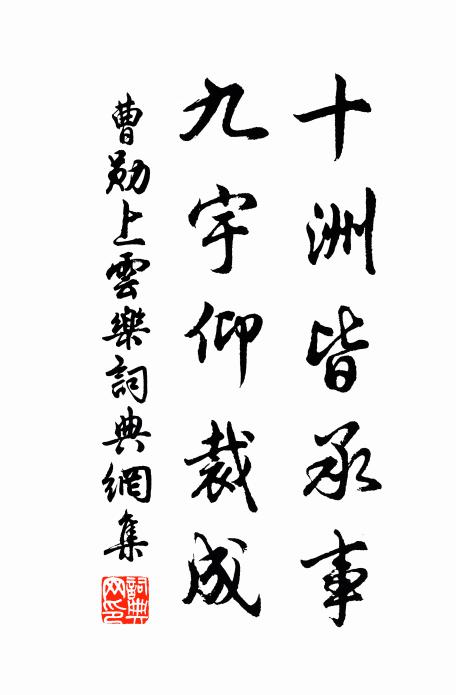 十洲皆承事
九宇仰裁成
曹勛上雲樂詞典網集
詞典網印